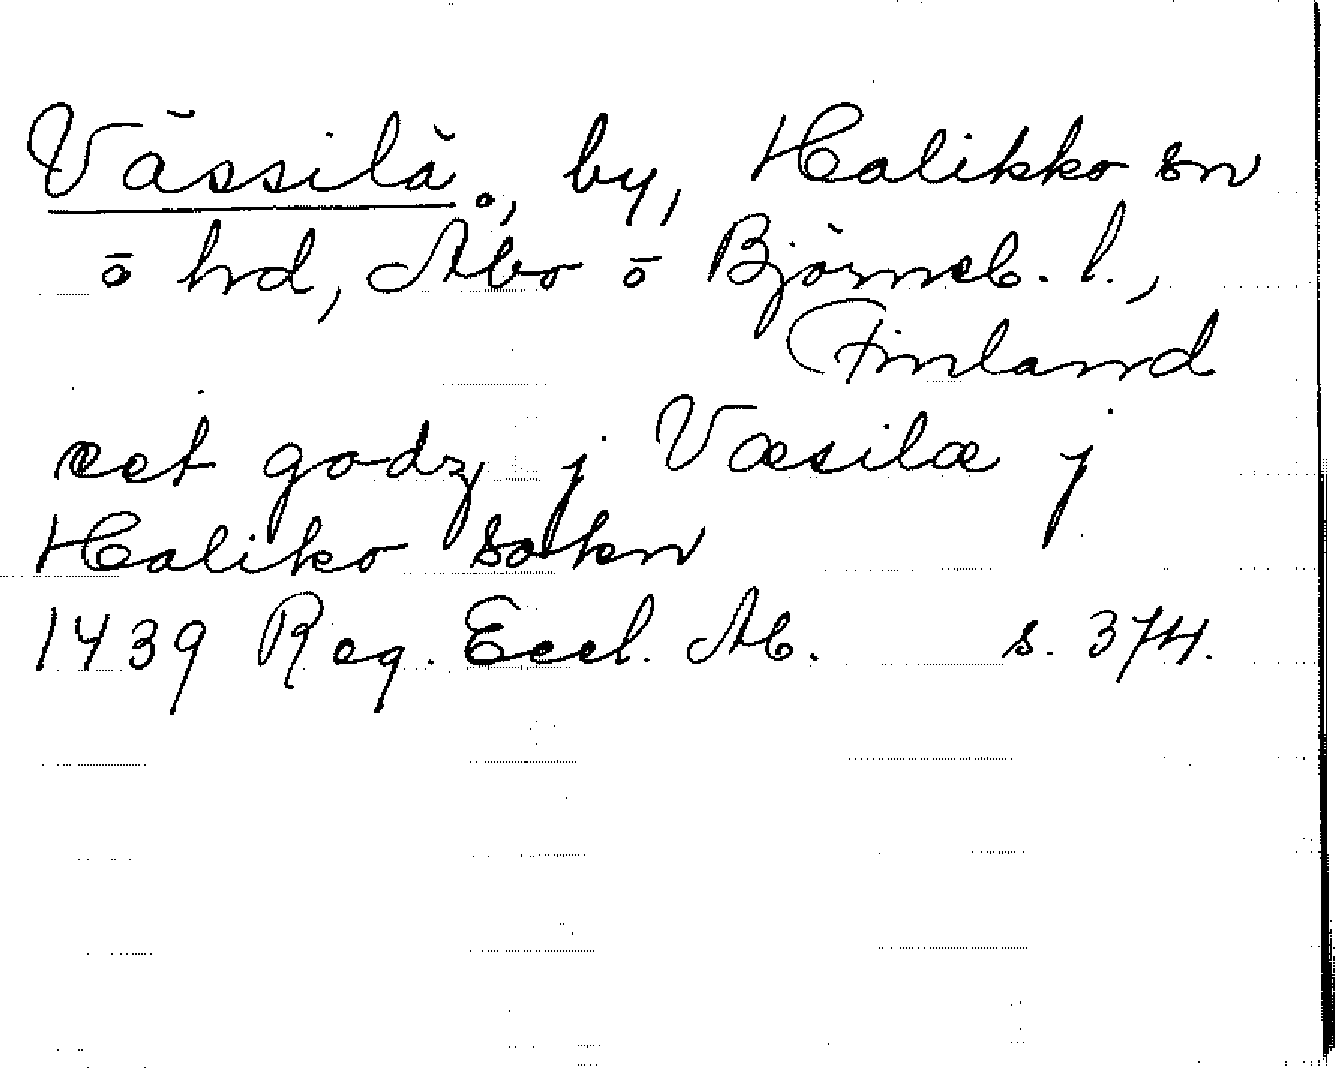 Vässilä., by, Halikko sn
o hd, Åbo o Björneb. l.,
Finland
eet godz j Væsilæ j
Haliko sokn
1439 Reg. Eccl. Ab. s. 374.